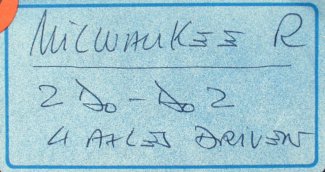 MILWAUKEE R
2 Do - Do 2
4 AXLES DRIVEN